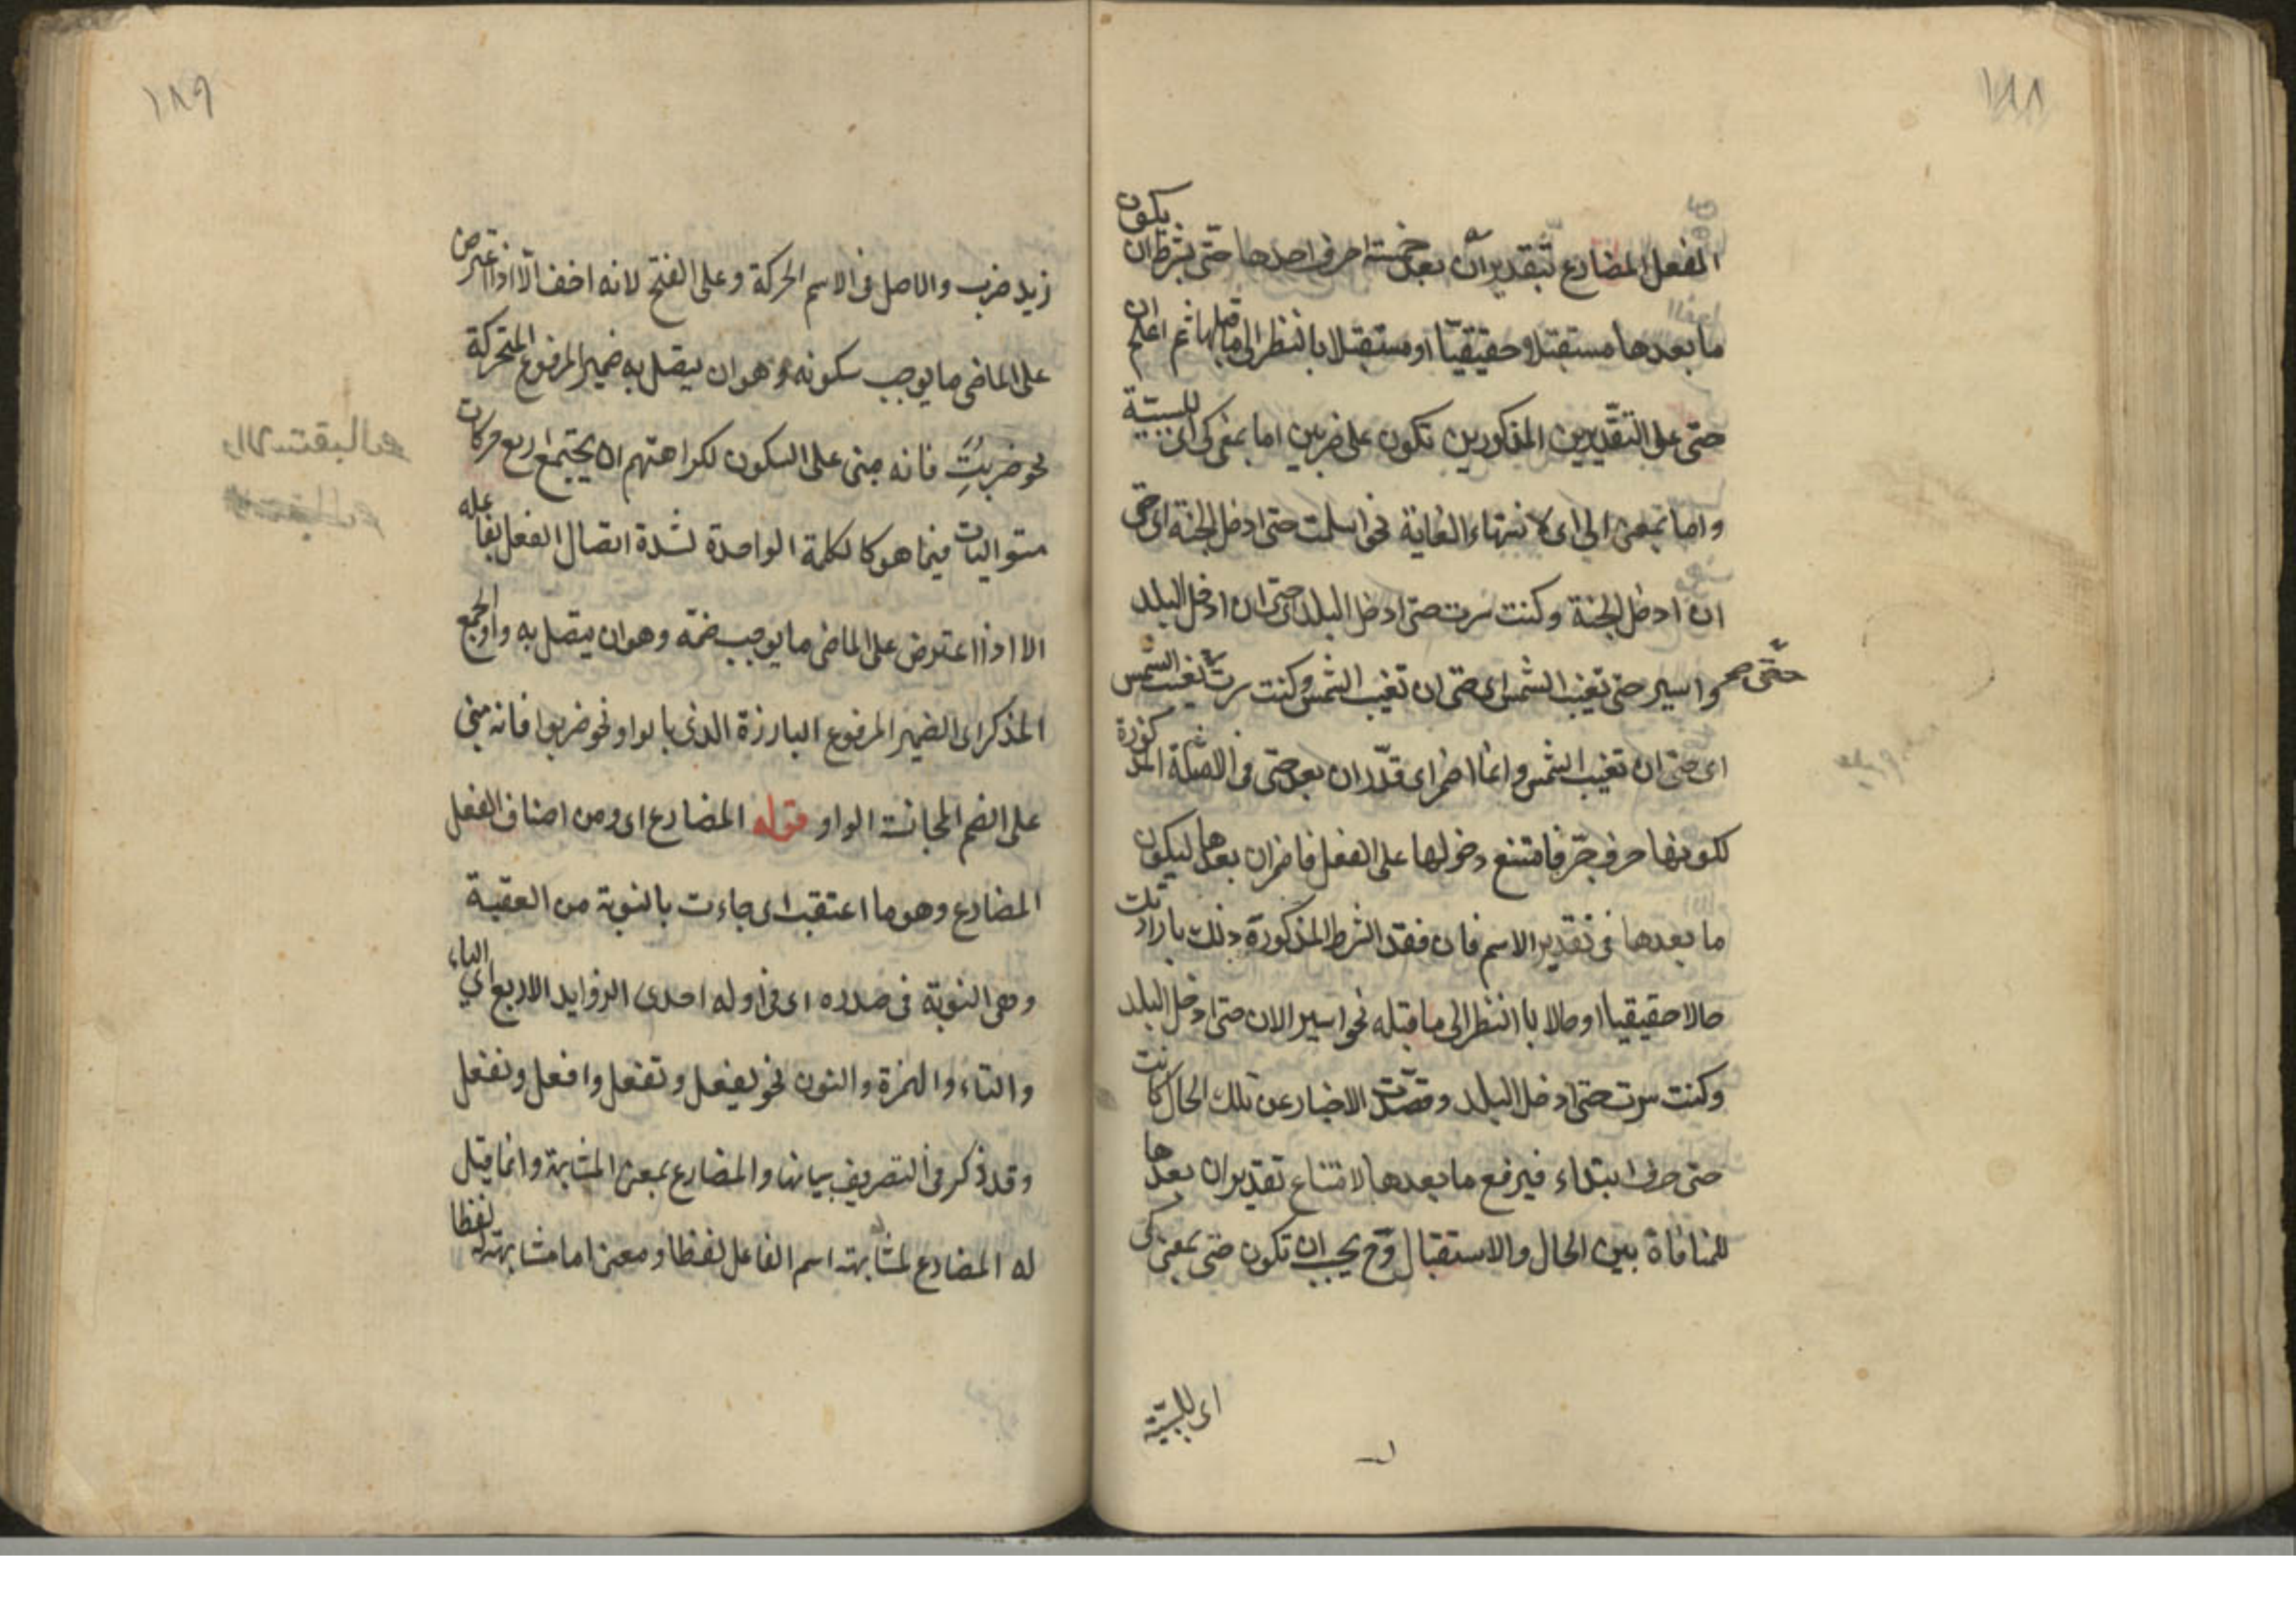 ١٨٨
الفعل المضارع بتقدير ان بعد خمسة احرف احدها حتّى بشرط ان يكون
ما بعدها مستقبلا حقيقيّا او مستقبلا بالنظر الى ما قبلها ثم اعلم ان
حتى على التقديرين المذكورين تكون على ضربين اما بمعنى كى اى للسببيّة
واما بمعنى الى اى لانتهاء الغاية نحو اسلمت حتى ادخل الجنة اى حتى
ان ادخل الجنة وكنت سرت حتى ادخل البلد اى حتى ان ادخل البلد
واسير حتى تغيب الشمس اى حتى ان تغيب الشمس وكنت سرت حتّى تغيب الشمس
اى حتى ان تغيب الشمس وانما اضمر اى قدّر ان بعد حتى فى الامثلة المذكورة
لكونها حرف جرّ فامتنع دخولها على الفعل فاضمر ان بعدها ليكون
ما بعدها فى تقدير الاسم فان فقد الشرط المذكورة وذلك بان اردت
حالا حقيقيا او حالا باالنظر الى ما قبله نحو اسير الان حتى ادخل البلد
وكنت سرت حتى ادخل البلد وقصدت الاخبار عن تلك الحال كانت
حتى حرف ابتداء فيرفع ما بعدها لامتناع تقدير ان بعدها
للمنافاة بين الحال والاستقبال وح يجب ان تكون حتى بمعنى كى
اى للسببيّة
١٨٩
زيد ضرب والاصل فى الاسم الحركة وعلى الفتح لانه اخف الّا اذا اعترض
على الماضى ما يوجب سكونه وهو ان يتصل به ضمير المرفوع المتحركة
نحو ضربت فانه مبنى على السكون لكراهتهم ان يجتمع اربع حركات
متواليات فيما هو كالكلمة الواحدة لشدة اتصال الفعل بفاعله
الا اذا اعترض على الماضى ما يوجب ضمّه وهو ان يتصل به واو الجمع
المذكر اى الضمير المرفوع البارزة الذى بالواو نحو ضربوا فانه مبنى
على الضم لمجانسة الواو قوله المضارع اى ومن اصناف الفعل
المضارع وهو ما اعتقب اى جاءت بالنوبة من العقبة
وهى النوبة فى صدره اى فى اوله احدى الزوايد الاربع اى الياء
والتاء والهمزة والنون نحو يفعل وتفعل وافعل ونفعل
وقد ذكر فى التصريف بيانها والمضارع بمعنى المشابهة وانما قيل
له المضارع لمشابهته اسم الفاعل لفظا ومعنى اما مشابهته له لفظا